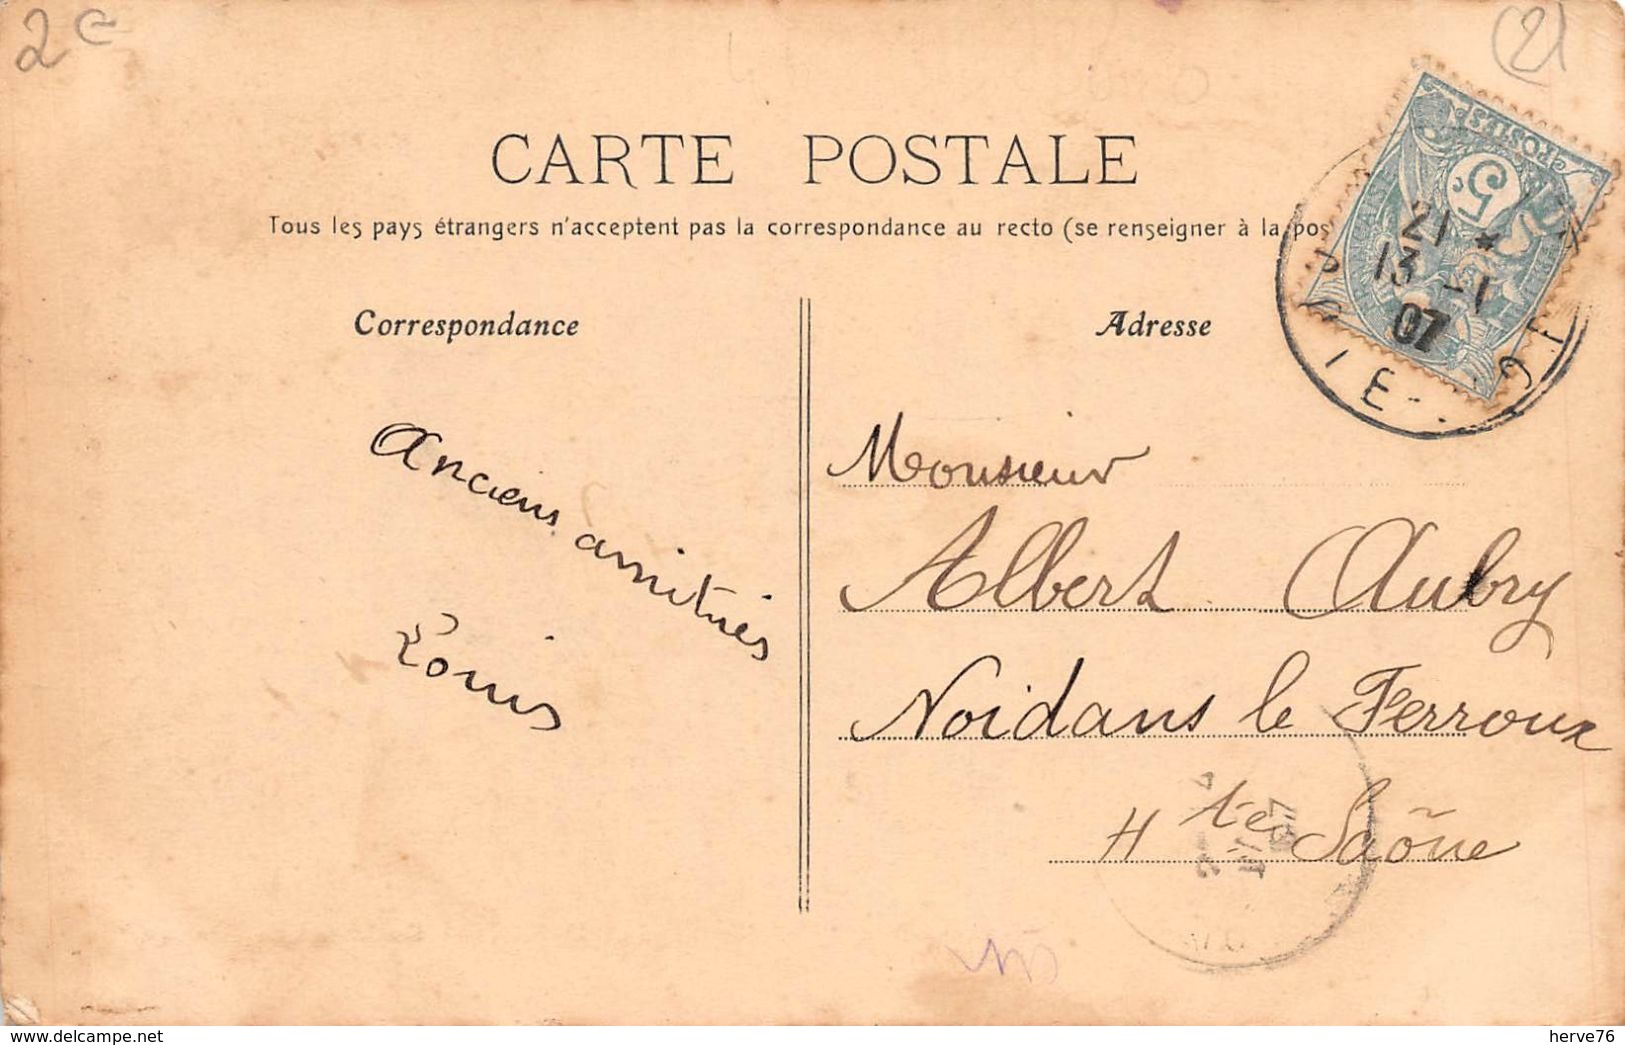 2 e
(2)
CARTE POSTALE
Tous les pays étrangers n'acceptent pas la correspondance au recto (se renseigner à la pos
Correspondance
Adresse
POSTES
5c
21
13 - 1
07
Anciens amitiés
Louis
Monsieur
Albert Aubry
Noidans le Ferroux
Hte Saône
www.delcampe.net
herve76